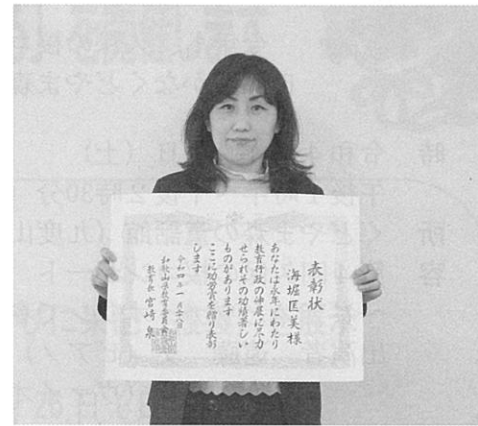 表彰状
海堀匡美様
あなたは永年にわたり
教育行政の伸展に尽力
せられその功績著しい
ものがあります
ここに功労賞を贈り表彰
します
令和四年一月
和歌山県教育委員会
教育長 宮﨑 泉
時 令和
後2時30分
所
(九度山